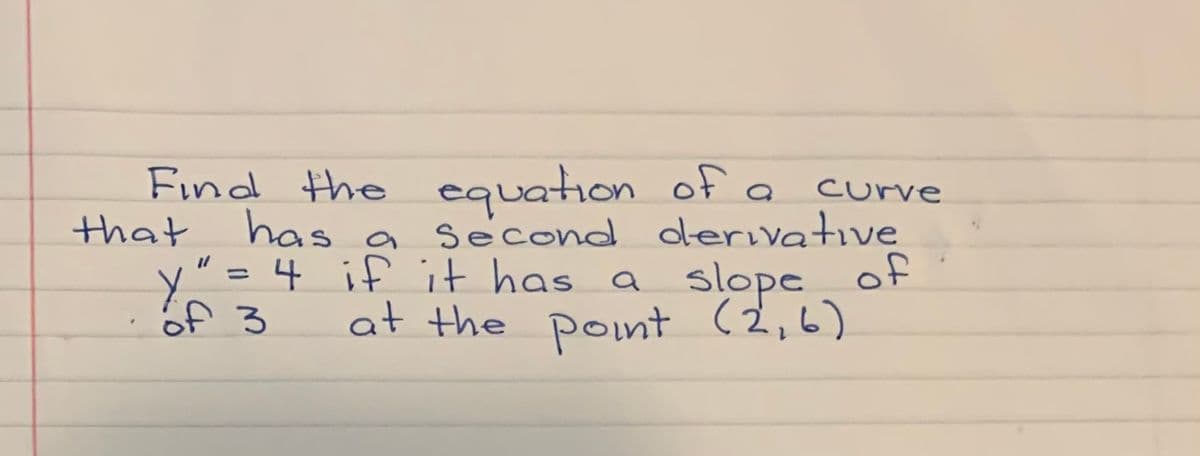 Find the equation of a curve
that has a second derivative
y" = 4 if it has a slope of
of 3 at the point (2,6)